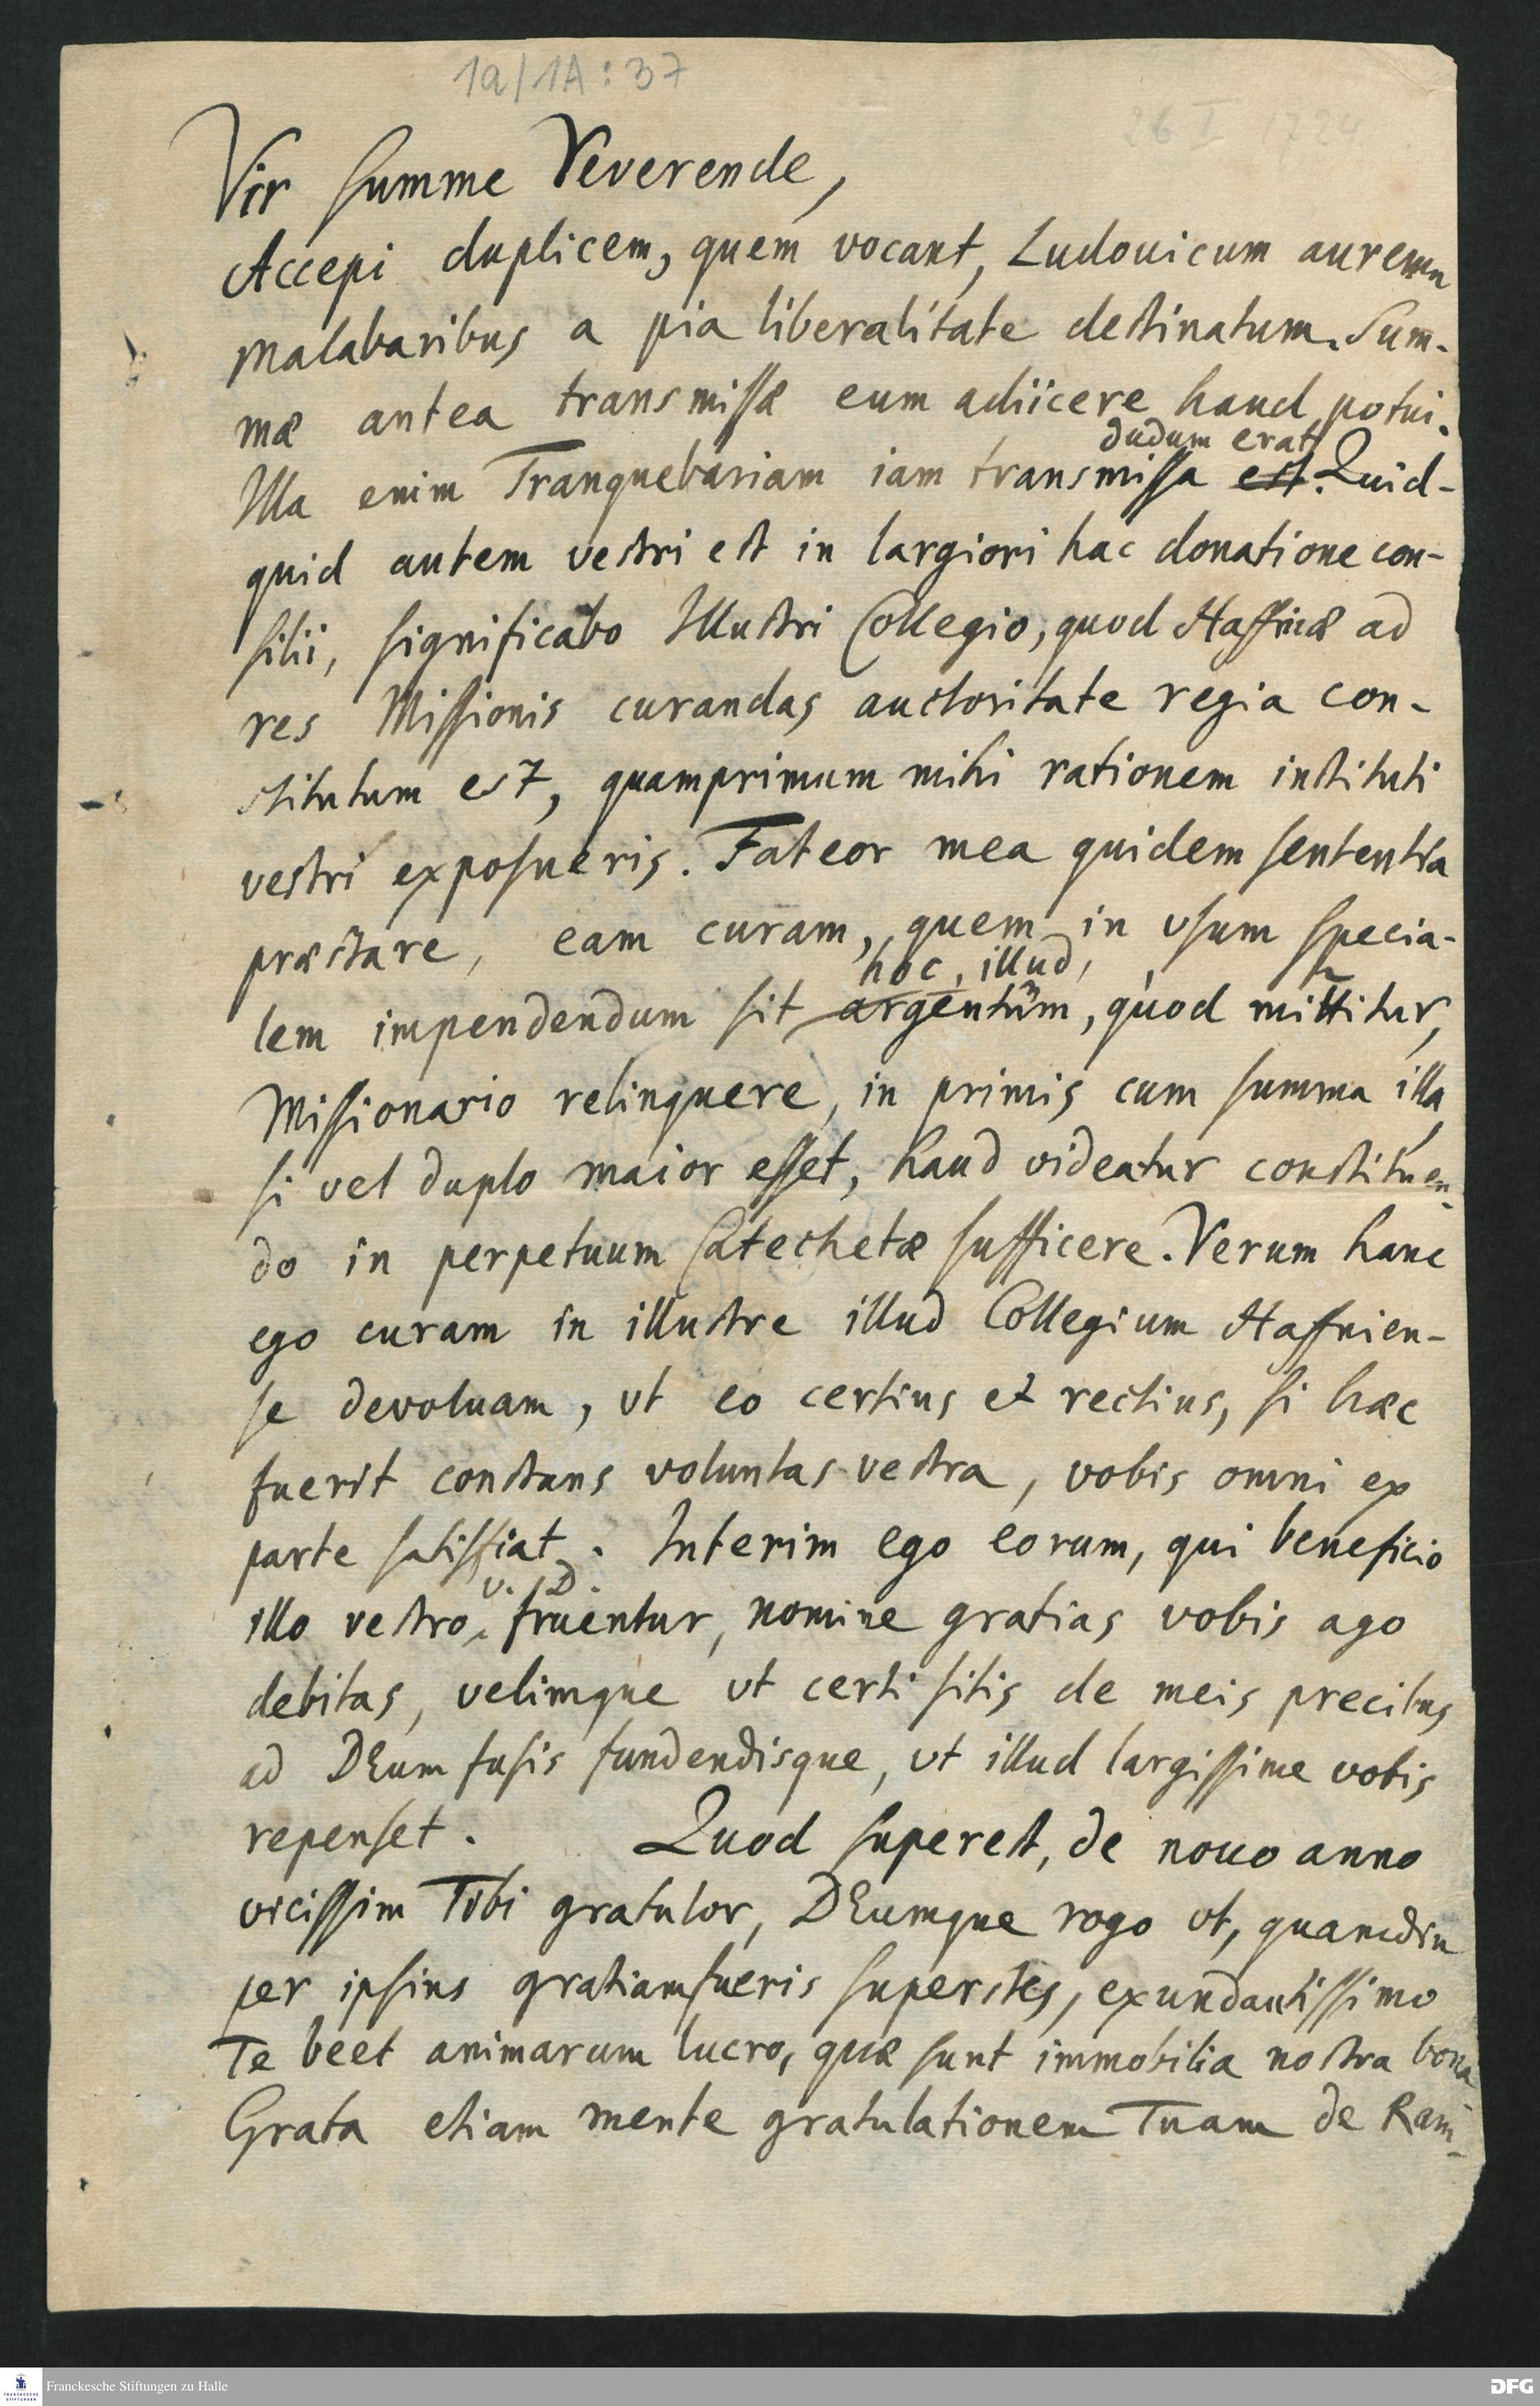 1a/1A : 37
26 I 1724
Vir summe Reverende,
Accepi duplicem, quem vocant, Ludouicum aureum
Malabaribus a pia liberalitate destinatum. Sum-
mæ antea transmissæ eum adiicere haud potui.
dudum erat
Illa enim Tranquebariam iam transmissa est. Quid-
quid autem vestri est in largiori hac donatione con-
silii, significabo Illustri Collegio, quod Haffniæ ad
res Missionis curandas auctoritate regia con-
stitutum est, quamprimum mihi rationem instituti
vestri exposueris. Fateor mea quidem sententia
præstare, eam curam, quem in vsum specia-
hoc, illud,
lem impendendum sit argentum, quod mittitur,
Missionario relinquere, in primis cum summa illa
si vel duplo maior esset, haud videatur constituen-
do in perpetuum Catechetæ sufficere. Verum hanc
ego curam in illustre illud Collegium Haffnien-
se devoluam, vt eo certius et rectius, si hæc
fuerit constans voluntas vestra, vobis omni ex
parte satisfiat. Interim ego eorum, qui beneficio
v. D.
illo vestro, fruentur, nomine gratias vobis ago
debitas, velimque vt certi sitis de meis precibus
ad DEum fusis fundendisque, vt illud largissime vobis
repenset. Quod superest, de nouo anno
vicissim Tibi gratulor, DEumque rogo vt, quamdiu
per ipsius gratiam fueris superstes, exundantissimo
Te beet animarum lucro, quæ sunt immobilia nostra bona
Grata etiam mente gratulationem Tuam de Ram-
Franckesche Stiftungen zu Halle
DFG